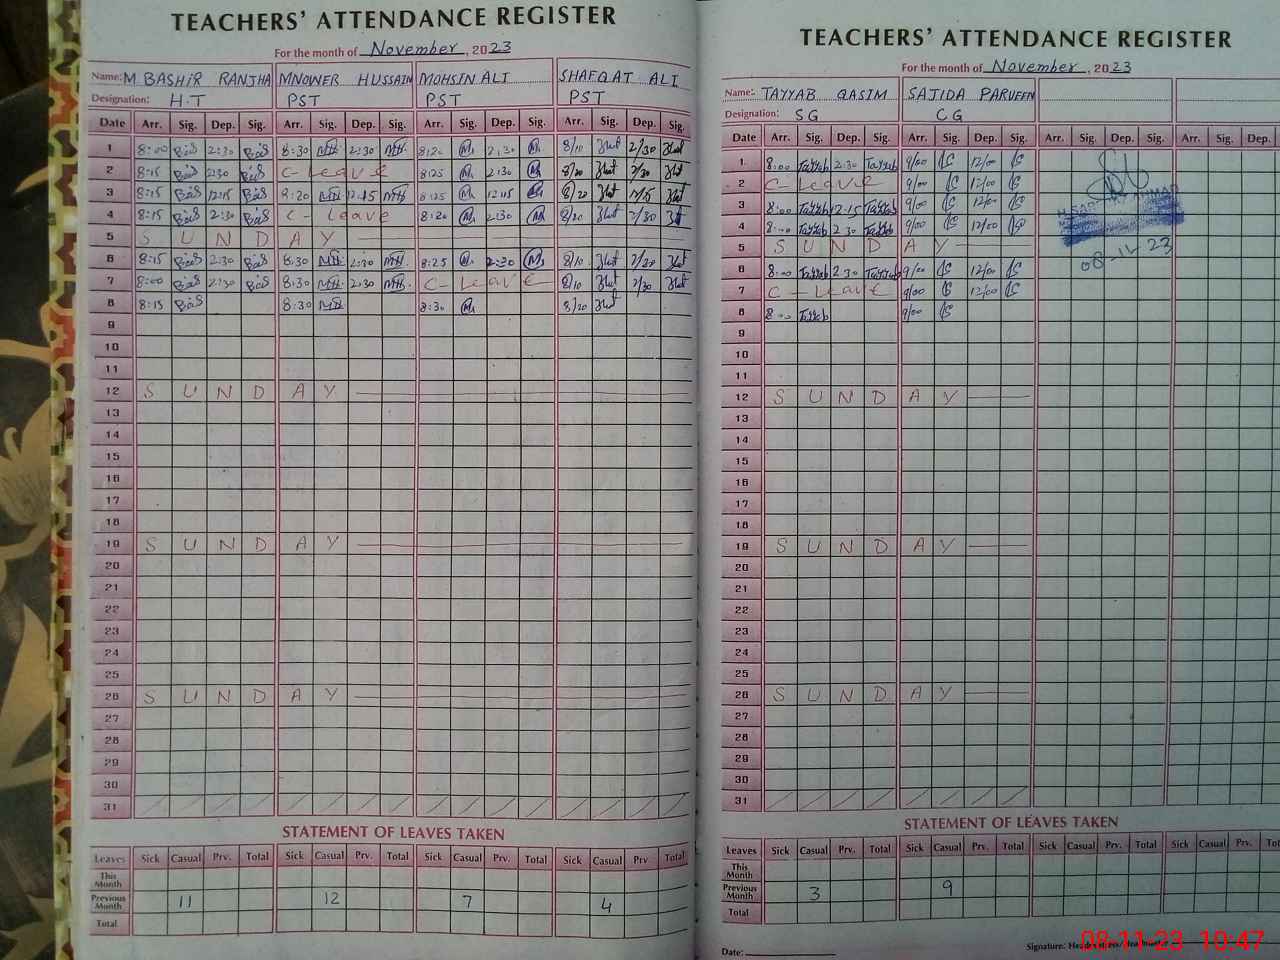 TEACHERS' ATTENDANCE REGISTER
For the month of November, 2023
Name: M BASHIR RANJHA MNOWER HUSSAIN MOHSIN ALI SHAFQAT ALI
Designation: H.T PST PST PST
Date Arr. Sig. Dep. Sig. Arr. Sig. Dep. Sig. Arr. Sig. Dep. Sig. Arr. Sig. Dep. Sig.
1 8:00 2:30 8:30 2:30 8:20 2:30 8/10 2/30
2 8:15 2:30 C- Leave 8:25 2:30 8/20 2/30
3 8:15 12:15 8:20 12:15 8:25 12:15 8/20 12/15
4 8:15 2:30 C- Leave 8:20 2:30 8/20 2/30
5 S U N D A Y
6 8:15 2:30 8:30 2:30 8:25 2:30 8/10 2/30
7 8:00 2:30 8:30 2:30 C- Leave 8/10 2/30
8 8:15 8:30 8:30 8/20
9
10
11
12 S U N D A Y
13
14
15
16
17
18
19 S U N D A Y
20
21
22
23
24
25
26 S U N D A Y
27
28
29
30
31
STATEMENT OF LEAVES TAKEN
Leaves Sick Casual Prv. Total Sick Casual Prv. Total Sick Casual Prv. Total Sick Casual Prv Total
This Month
Previous Month 11 12 7 4
Total
TEACHERS' ATTENDANCE REGISTER
For the month of November, 2023
Name: TAYYAB QASIM SAJIDA PARVEEN
Designation: SG CG
Date Arr. Sig. Dep. Sig. Arr. Sig. Dep. Sig. Arr. Sig. Dep. Sig. Arr. Sig. Dep.
1 8:00 Tayyab 2:30 Tayyab 9/00 12/00
2 C- Leave 9/00 12/00
3 8:00 Tayyab 12:15 Tayyab 9/00 12/00
4 8:00 Tayyab 2:30 Tayyab 9/00 12/00
5 S U N D A Y
6 8:00 Tayyab 2:30 Tayyab 9/00 12/00
7 C- Leave 9/00 12/00
8 8:00 Tayyab 9/00
9
10
11
12 S U N D A Y
13
14
15
16
17
18
19 S U N D A Y
20
21
22
23
24
25
26 S U N D A Y
27
28
29
30
31
08-11-23
STATEMENT OF LEAVES TAKEN
Leaves Sick Casual Prv. Total Sick Casual Prv. Total Sick Casual Prv. Total Sick Casual Prv.
This Month
Previous Month 3 9
Total
Date:
Signature:
08-11-23 10:47